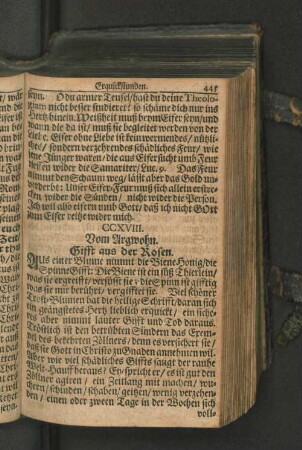 Erquickstunden. 445
seyn. O du armer Teufel/hast du deine Theolo-
nicht besser studieret! so scheine dich nur ins
Hertz hinein. Weißheit muß beym Eifer seyn/und
wann die da ist/ muß sie begleitet werden von der
Eifer ohne Liebe ist kein vermendes/nützli-
ches/ sondern verzehrendes schädliches Feur/ wie
Jünger waren/die aus Eifer nicht umb Feur
wider die Samariter/Luc. 9. Das Feur
nimmt den Schaum weg/ läst aber das Gold un-
verderbt: Unser Eifer-Feur muß sich allein erstre-
cken wider die Sünden/ nicht wider die Person.
Ich will also eifern umb Gott/ daß ich nicht GOtt
zum Eifer reitze wider mich.
CCXVIII.
Vom Argwohn.
Gifft aus der Rosen.
Aus einer Blume nimmt die Biene Honig/die
Spinne Gifft: Die Biene ist ein süß Thierlein/
was sie ergreifft/ versüßt sie; die Spinn ist gifftig
was sie nur berührt/ vergifftet sie. Viel schöner
Trost-Blumen hat die heilige Schrifft/daran sich
ein geängstetes Hertz lieblich erquickt/ ein siche-
res aber nimmt lauter Gifft und Tod daraus.
Tröstlich ist den betrübten Sündern das Exem-
pel des bekehrten Zöllners/ denn es versichert sie/
daß sie Gott in Christo zu Gnaden annehmen will.
Aber wie viel schädliches Giffts saugt der rauhe
Welt-Hauff heraus? Ey/spricht er/ es ist gut den
Zöllner agiren/ ein Zeitlang mit machen/ wu-
chern/schinden/schaben/geitzen/wenig verzehen-
den/ einen oder zween Tage in der Wochen sich
voll-